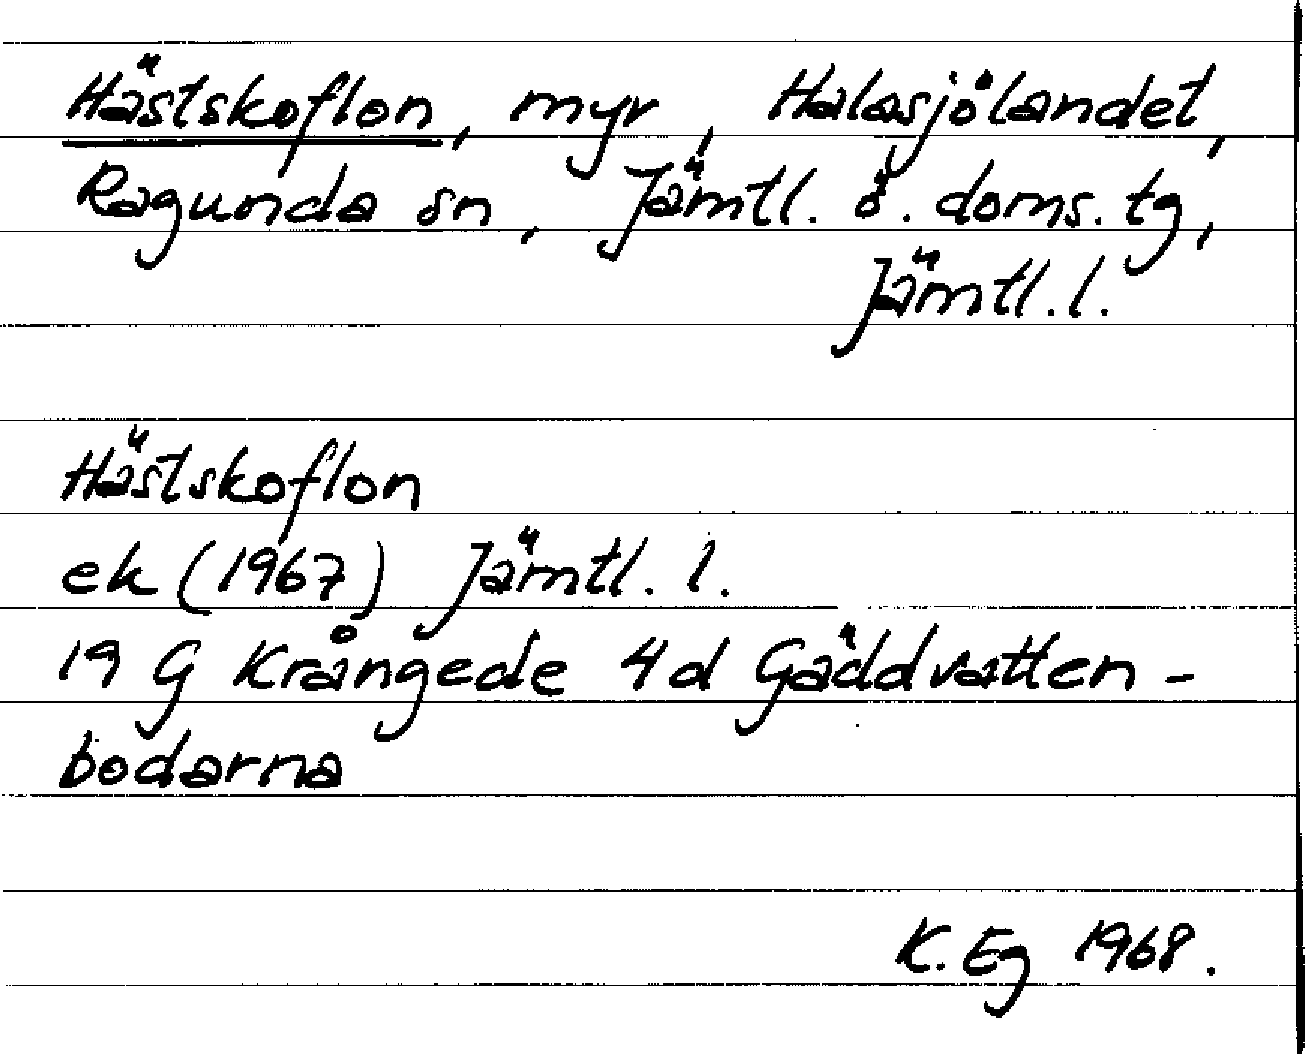 Hästskoflon, myr, Halasjölandet,
Ragunda sn, Jämtl. ö. doms. tg,
Jämtl. l.
Hästskoflon
ek (1967) Jämtl. l.
19 G Krångede 4d Gäddvatten-
bodarna
K. Eg 1968.